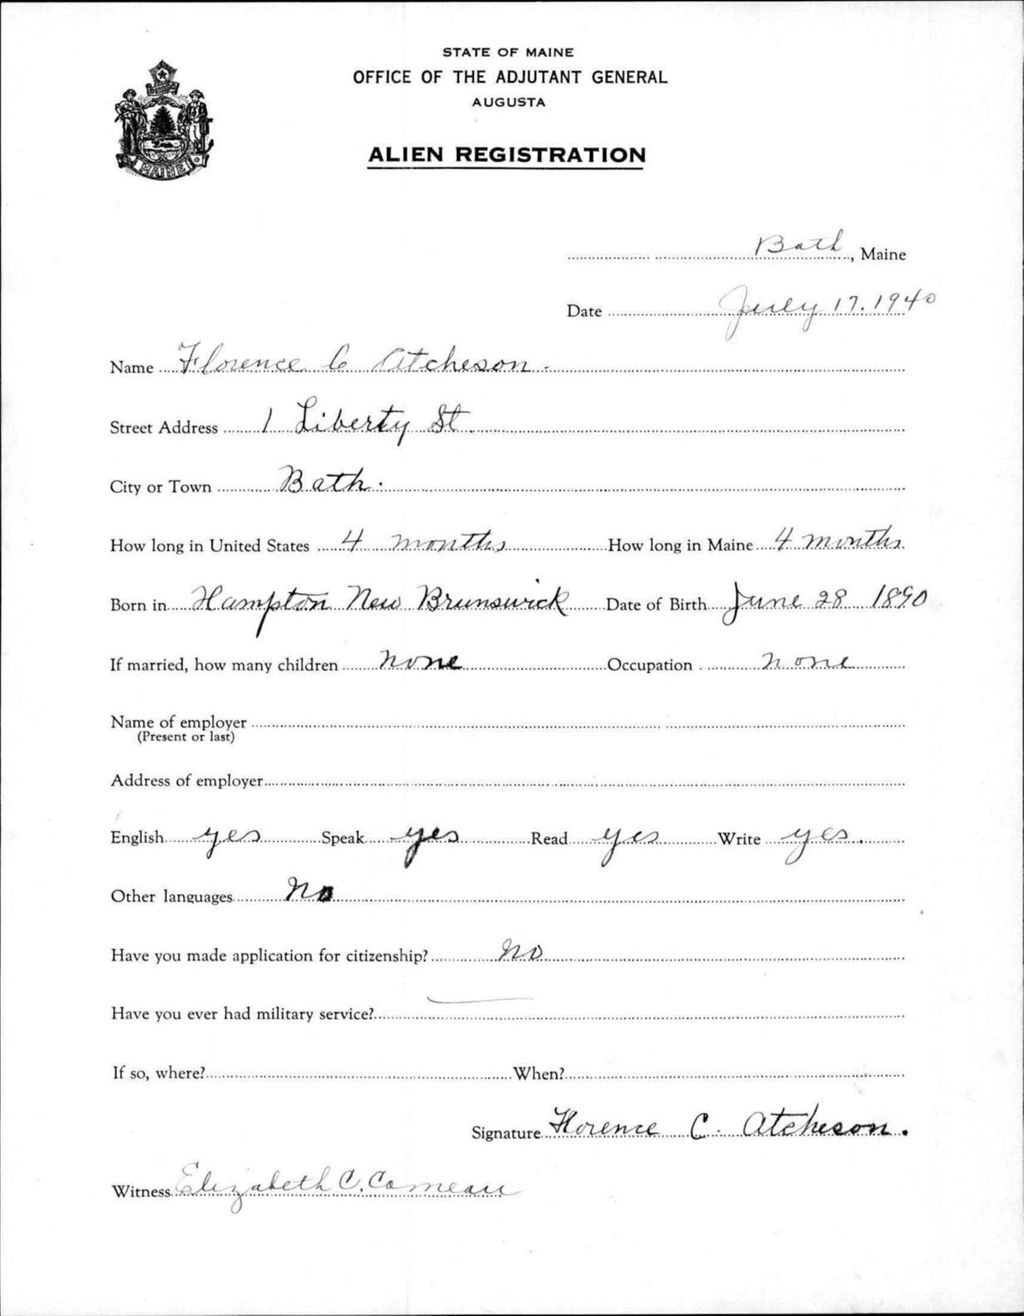 STATE OF MAINE
OFFICE OF THE ADJUTANT GENERAL
AUGUSTA
ALIEN REGISTRATION
MAINE
Bath, Maine
Date July 17, 1940
Name Florence C Atcheson.
Street Address 1 Liberty St.
City or Town Bath.
How long in United States 4 months How long in Maine 4 months.
Born in Hampton New Brunswick Date of Birth June 28 1890
If married, how many children none Occupation none
Name of employer
(Present or last)
Address of employer
English yes Speak yes Read yes Write yes.
Other languages No
Have you made application for citizenship? No
Have you ever had military service?
If so, where? When?
Signature Florence C. Atcheson.
Witness Elizabeth C. Comeau